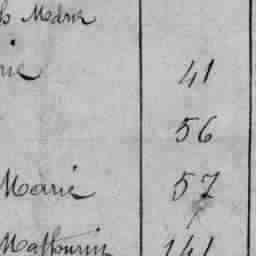 Marie
41
56
Marie 57
Mathurin 141